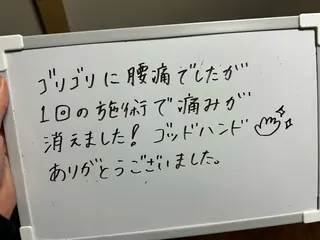 ゴリゴリに腰痛でしたが
1回の施術で痛みが
消えました！ゴッドハンド
ありがとうございました。